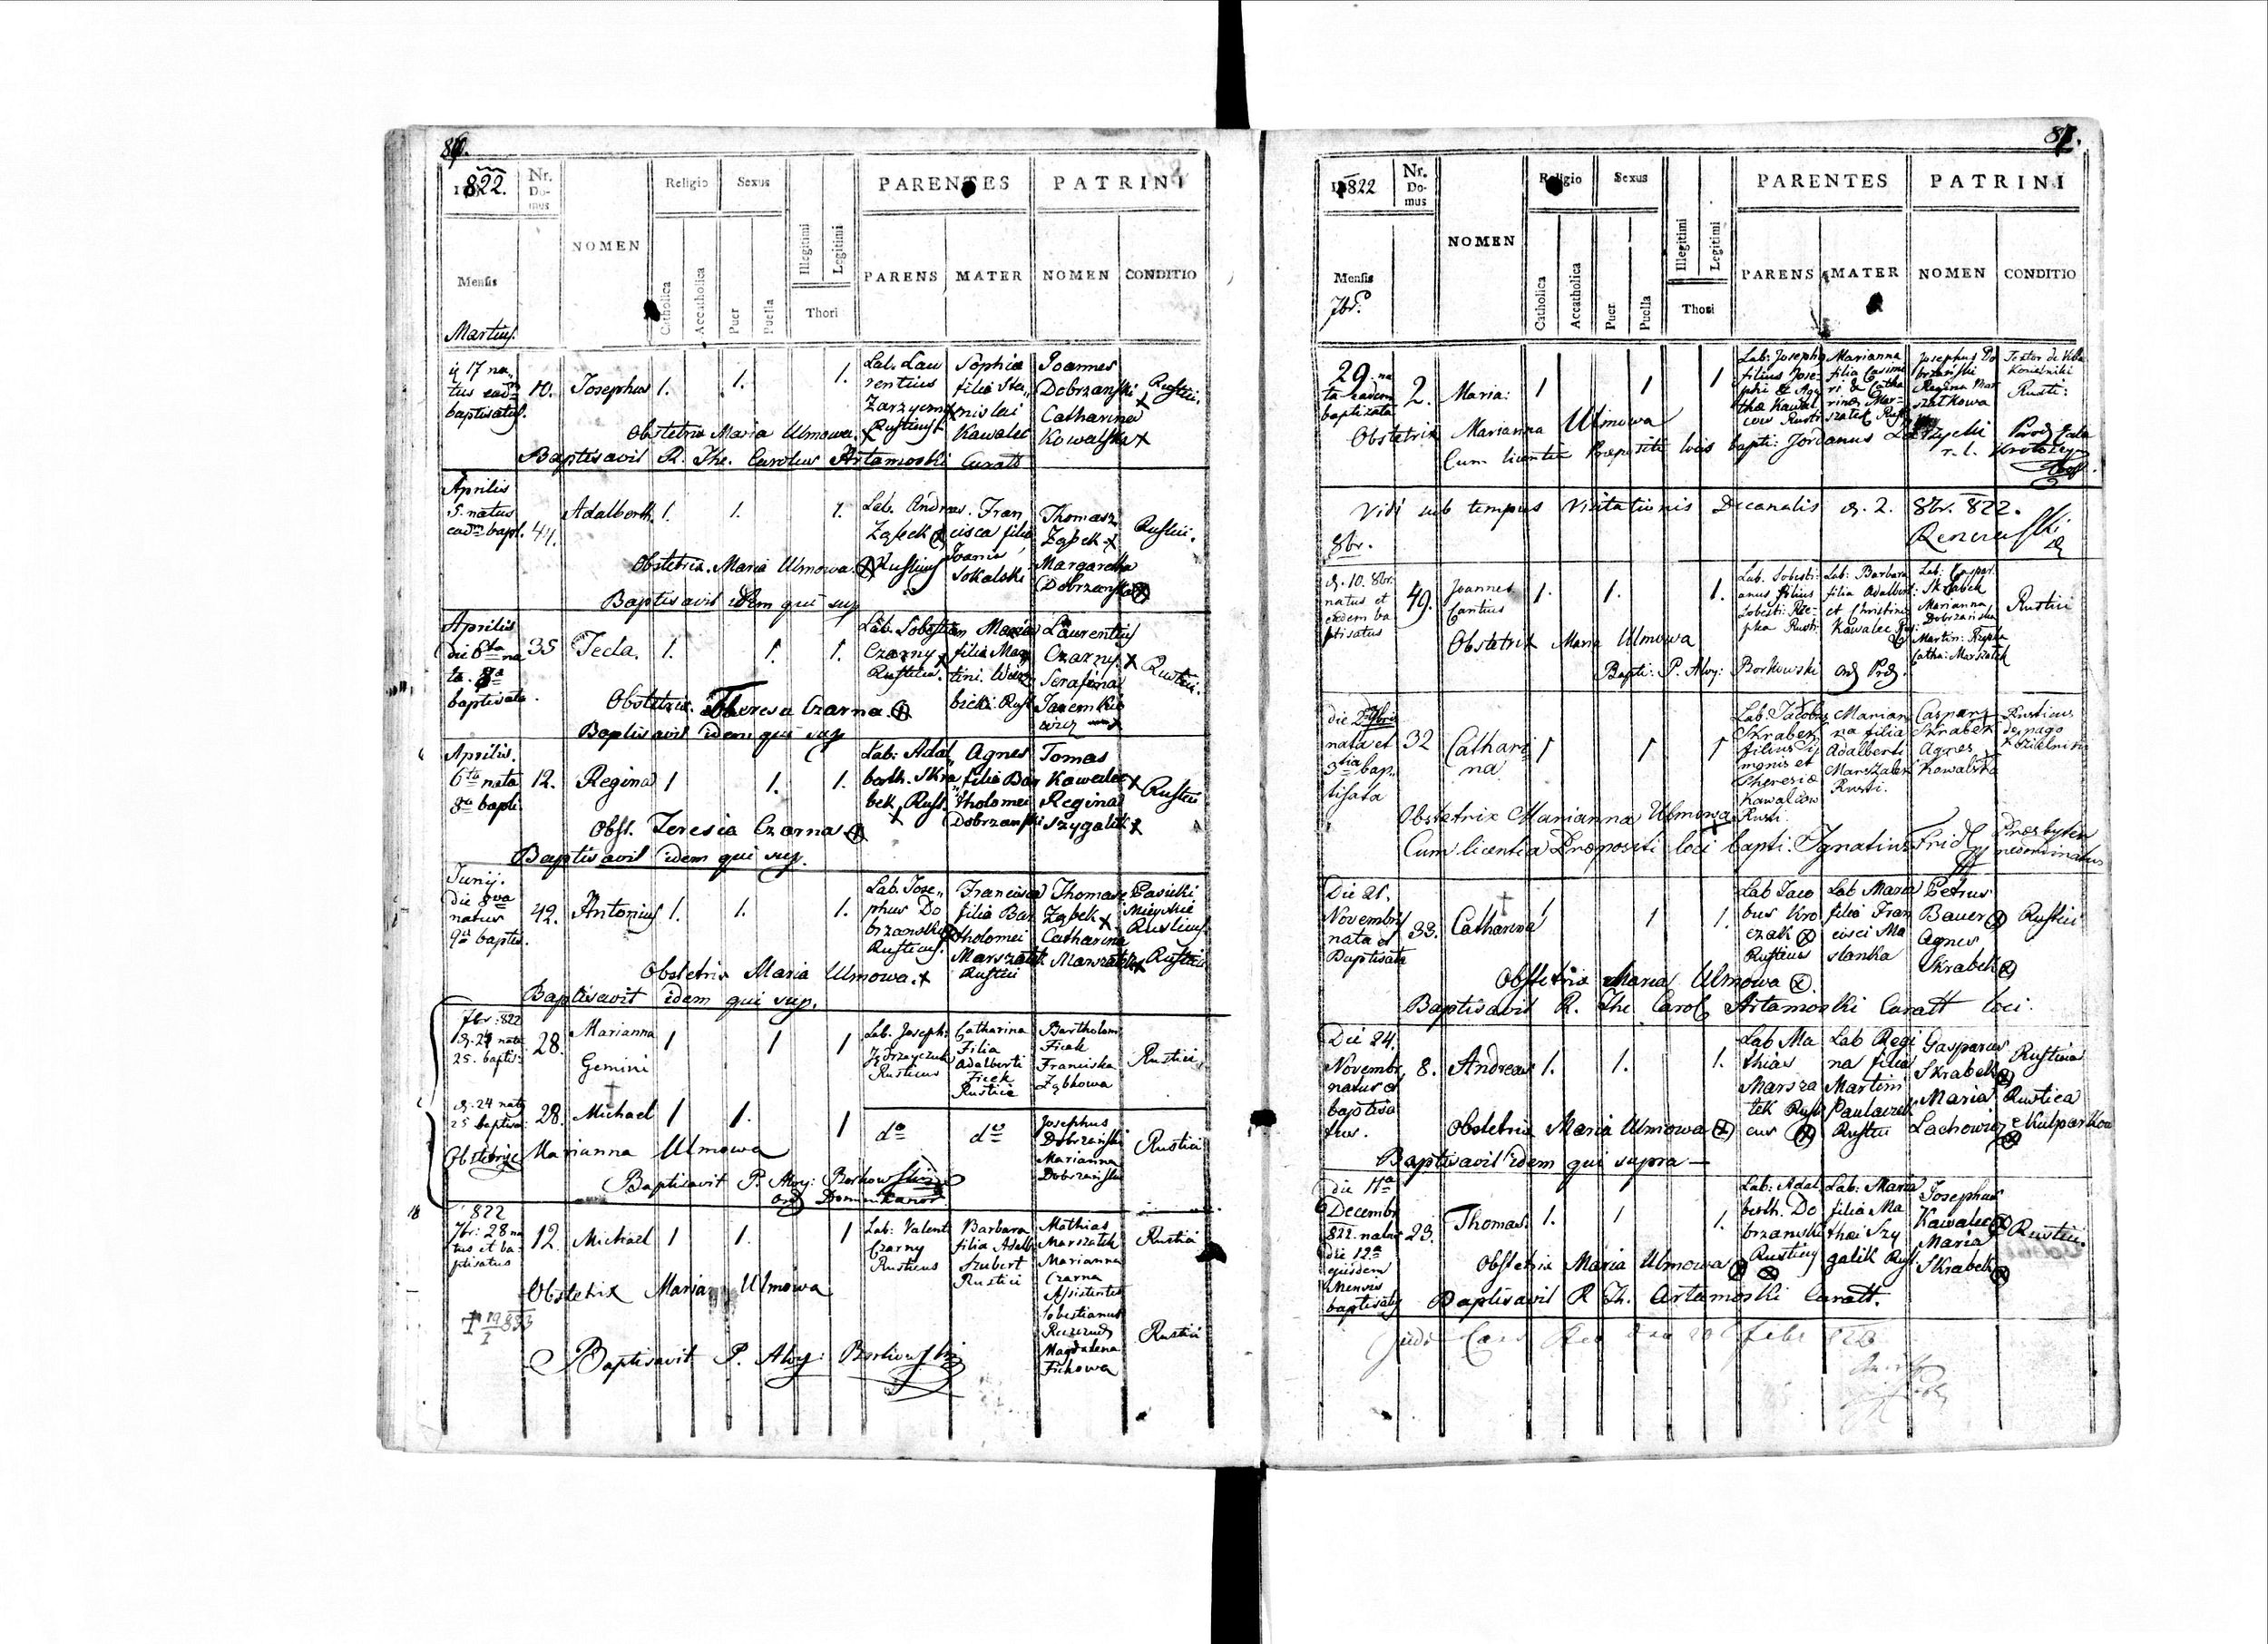 86.
1822.
Nr. Domus
NOMEN
Religio
Sexus
Catholica
Accatholica
Puer
Puella
Illegitimi
Legitimi
Thori
PARENTES
PATRINI
PARENS
MATER
NOMEN
CONDITIO
Mensis
Martius.
17 na
tus ead
baptisatus.
10.
Josephus
1.
1.
1.
Lab. Lau
rentius
Rusticus
Sophia
filia Sta
nislai
Kawalec
Joannes
Dobrzanski
Catharina
Kowalska
Rustici.
Obstetrix Maria Ulmowa.
Baptisavit R. The. Carolus Artamoski Curatt
Aprilis
5. natus
44.
Adalberth.
1.
1.
1.
Lab. Andreas.
Ząbek
Rusticus
Fran
cisca filia
Joannis
Sokalski
Thomasz
Ząbek
Margaretha
Dobrzanska
Rustici.
Obstetrix. Maria Ulmowa.
Baptisavit idem qui sup
Aprilis
die 6ta na
ta. 8a
baptisata.
35
Tecla.
1.
1.
1.
Lab. Sobestian
Czarny
Maria
filia Mar
tini
Laurentius
Czarny.
Serafina
Rustici.
Obstetrix. Theresia Czarna.
Baptisavit idem qui sup
Aprilis.
6ta nata
8a bapti
12.
Regina
1
1.
1.
Lab. Adal
berth. Skra
bek, Rust.
Agnes
filia Bar
tholomei
Dobrzanski
Tomas
Kawalec
Regina
Szygalik
Rustici
Obst. Teresia Czarna
Baptisavit idem qui sup.
Junij.
die 8va
natus
9a baptis.
42.
Antonius
1.
1.
1.
Lab. Jose
phus Do
brzanski
Rusticus.
Francisca
filia Bar
tholomei
Marszałek
Rustici
Thomas
Ząbek
Catharina
Marszałek
Pasieki
Mieyskie
Rusticus
Rustici
Obstetrix Maria Ulmowa.
Baptisavit idem qui sup.
7br. 822
d. 24 nata
25. baptis:
28.
Marianna
Gemini
1
1
1
Lab. Joseph:
Rusticus
Catharina
Filia
Adalberti
Ficek
Rustici
Bartholom
Ficek
Franciska
Ząbkowa
Rustici
d. 24 natus
25 baptisa:
28.
Michael
1
1.
1
do
do
Josephus
Dobrzański
Marianna
Dobrzańska
Rustici
Obstetrix Marianna Ulmowa
Baptisavit P. Aloy: Borkowski
Ord Dominikanor
822
7br. 28 na
tus et ba
ptisatus
12.
Michael
1
1.
1
Lab: Valent
Czarny
Rusticus
Barbara
filia Adalb
Szubert
Rustici
Mathias
Marszałek
Marianna
Czarna
Assistentes
Sobestianus
Magdalena
Fickowa
Rustici
Rustici
Obstetrix Maria Ulmowa
Baptisavit P. Aloy: Borkowski
87.
1822
Nr. Domus
NOMEN
Religio
Sexus
Catholica
Accatholica
Puer
Puella
Illegitimi
Legitimi
Thori
PARENTES
PATRINI
PARENS
MATER
NOMEN
CONDITIO
Mensis
7br.
29. na
ta eadem
baptizata
2.
Maria:
1
1
1
Lab: Joseph
filius Jose
phi & Aga
tha Kawal
cow Rusti
Marianna
filia Casimi
ri & Catha
rina Mar
szałek Rusti
Josephus Do
brzański
Regina Mar
szałkowa
Textor de Villa
Rusti:
Obstetrix Marianna Ulmowa
Cum licentia Præpositi loci bapti: Jordanus
Vidi sub tempus Visitationis Decanalis d. 2. 8br. 822.
8br.
d. 10. 8br.
natus et
eodem ba
ptisatus
49.
Joannes
Cantius
1.
1.
1.
Lab. Sobesti:
anus filius
Sobesti: Rze
pka Rusti:
Lab: Barbara
filia Adalbert:
et Christina
Kawalec
Lab: Kaspar.
Skrabek
Marianna
Dobrzańska
Martin: Rzepka
Catha: Marszałek
Rustici
Obstetrix Maria Ulmowa
Bapti: P. Aloy: Borkowski Ord Prd.
nata et
3tia bap
tisata
32
Cathari
na
1
1
1
Lab. Jacobus
Skrabek
filius Sy
monis et
Theresiæ
Kawalcow
Rusti.
Marian
na filia
Adalberti
Marszałek
Rusti.
Casparz
Skrabek
Agnes
Kawalska
Rusticus
de pago
Obstetrix Marianna Ulmowa
Cum licentia Præpositi loci bapti. Ignatius Fridl Presbyter
neoordinatus
Die 21.
Novembris
nata et
Baptisata
33.
Catharina
1
1
1.
Lab Jaco
bus Kro
czak
Rusticus
Lab Maria
filia Fran
cisci Ma
slanka
Petrus
Bauer
Agnes
Skrabek
Rustici
Obstetrix Maria Ulmowa
Baptisavit R. The. Carol Artamoski Curatt loci.
Die 24.
Novembr
natus et
baptisa
tus.
8.
Andreas
1.
1.
1.
Lab Ma
thias
Marsza
łek Rusti
cus
Lab Regi
na filia
Martini
Pawlaczek
Rustici
Gasparus
Skrabek
Maria
Lachowicz
Rusticus
Rustica
e Kulparkow
Obstetrix Maria Ulmowa
Baptisavit idem qui supra
die 11a
Decembr
822. natus
die 12a
ejusdem
Mensis
baptisatus
23.
Thomas.
1.
1
1.
Lab: Adal
berth. Do
brzanski
Rusticus
Lab: Maria
filia Ma
thæi Szy
galik Rust
Josephus
Kawalec
Maria
Skrabek
Rustici.
Obstetrix Maria Ulmowa
Baptisavit R Th. Artamoski Curatt.